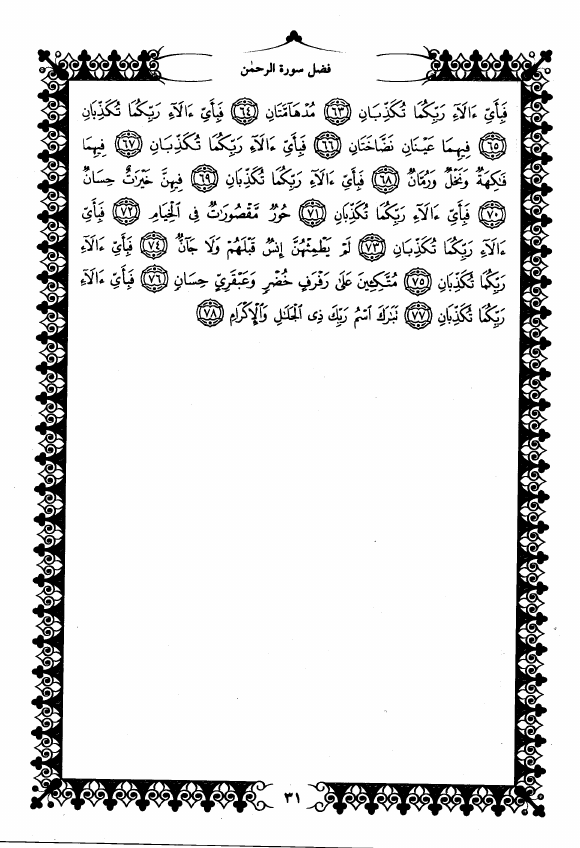 فضل سورة الرحمٰن
فَبِأَيِّ ءَالَآءِ رَبِّكُمَا تُكَذِّبَانِ ﴿٦٣﴾ مُدْهَآمَّتَانِ ﴿٦٤﴾ فَبِأَيِّ ءَالَآءِ رَبِّكُمَا تُكَذِّبَانِ
﴿٦٥﴾ فِيهِمَا عَيْنَانِ نَضَّاخَتَانِ ﴿٦٦﴾ فَبِأَيِّ ءَالَآءِ رَبِّكُمَا تُكَذِّبَانِ ﴿٦٧﴾ فِيهِمَا
فَٰكِهَةٌ وَنَخْلٌ وَرُمَّانٌ ﴿٦٨﴾ فَبِأَيِّ ءَالَآءِ رَبِّكُمَا تُكَذِّبَانِ ﴿٦٩﴾ فِيهِنَّ خَيْرَٰتٌ حِسَانٌ
﴿٧٠﴾ فَبِأَيِّ ءَالَآءِ رَبِّكُمَا تُكَذِّبَانِ ﴿٧١﴾ حُورٌ مَّقْصُورَٰتٌ فِى الْخِيَامِ ﴿٧٢﴾ فَبِأَيِّ
ءَالَآءِ رَبِّكُمَا تُكَذِّبَانِ ﴿٧٣﴾ لَمْ يَطْمِثْهُنَّ إِنسٌ قَبْلَهُمْ وَلَا جَآنٌّ ﴿٧٤﴾ فَبِأَيِّ ءَالَآءِ
رَبِّكُمَا تُكَذِّبَانِ ﴿٧٥﴾ مُتَّكِـِٔينَ عَلَىٰ رَفْرَفٍ خُضْرٍ وَعَبْقَرِيٍّ حِسَانٍ ﴿٧٦﴾ فَبِأَيِّ ءَالَآءِ
رَبِّكُمَا تُكَذِّبَانِ ﴿٧٧﴾ تَبَٰرَكَ اسْمُ رَبِّكَ ذِى الْجَلَٰلِ وَالْإِكْرَامِ ﴿٧٨﴾
٣١